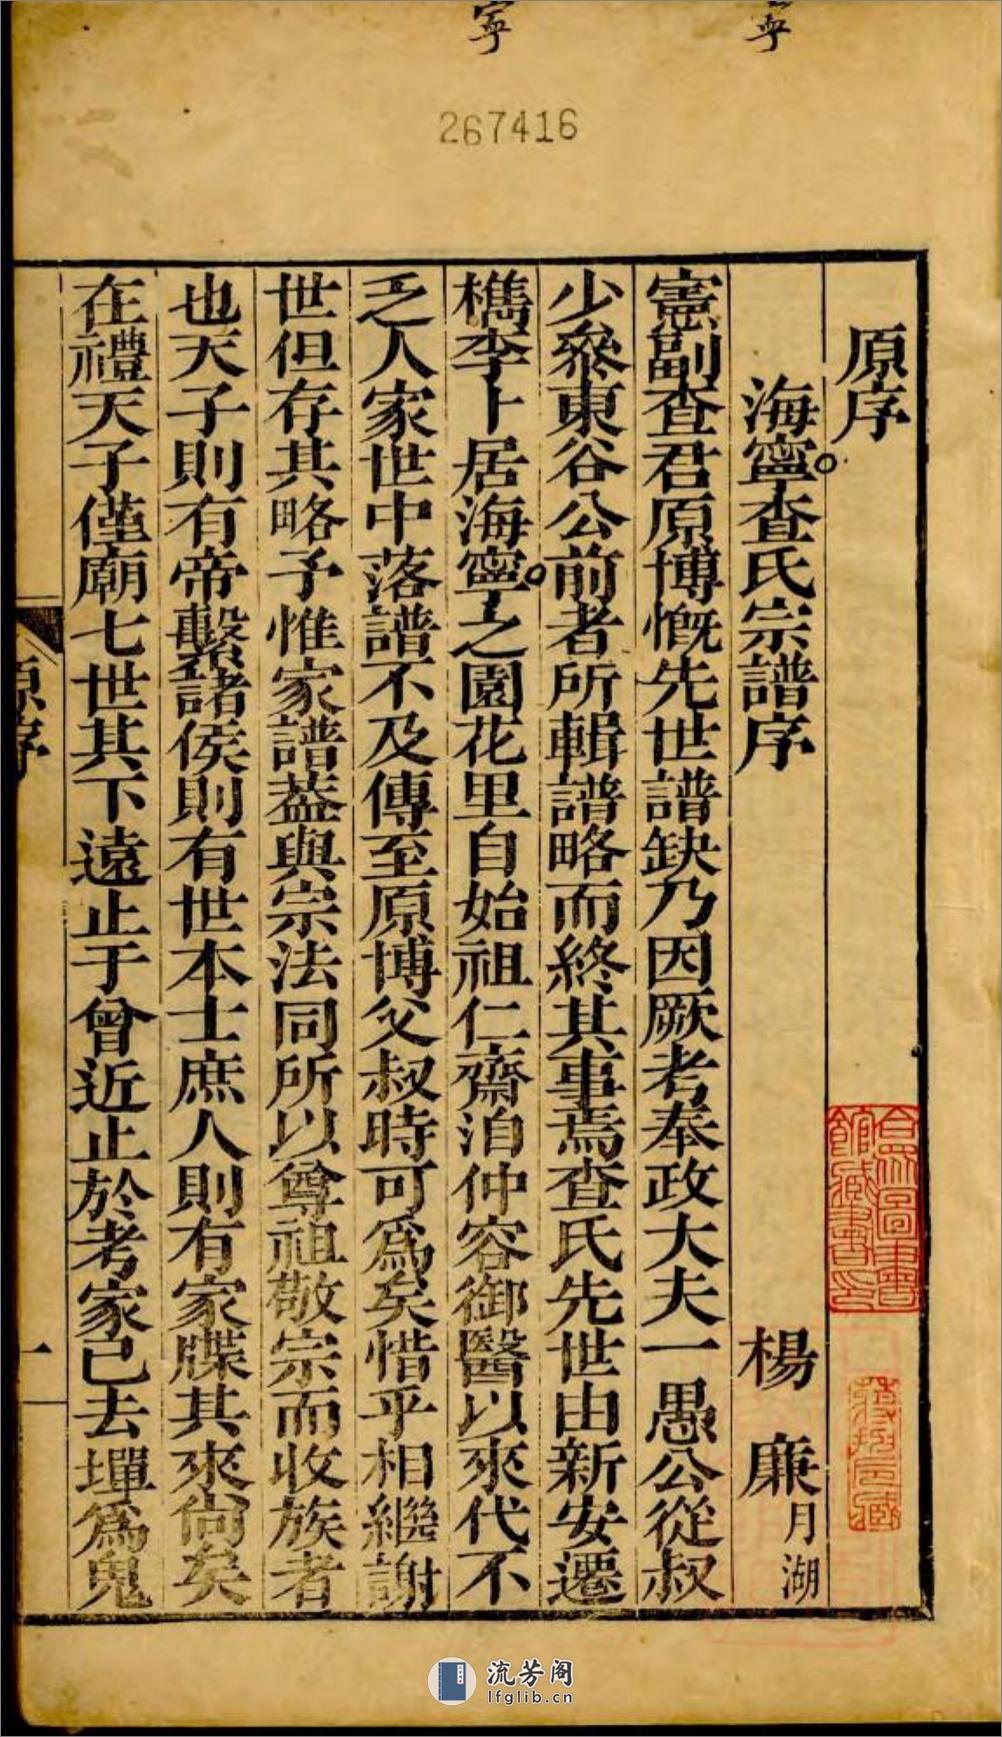 寧
寧
267416
原序
海寧查氏宗譜序
楊廉月湖
憲副查君原博慨先世譜缺乃因厥考奉政大夫一愚公從叔
少參東谷公前者所輯譜略而終其事焉查氏先世由新安遷
檇李卜居海寧之園花里自始祖仁齋洎仲容御醫以來代不
乏人家世中落譜不及傳至原博父叔時可為矣惜乎相繼謝
世但存其略予惟家譜蓋與宗法同所以尊祖敬宗而收族者
也天子則有帝繫諸侯則有世本士庶人則有家牒其來尚矣
在禮天子僅廟七世其下遠止于曾近止於考家已去墠為鬼
原序
一
流芳阁
lfglib.cn